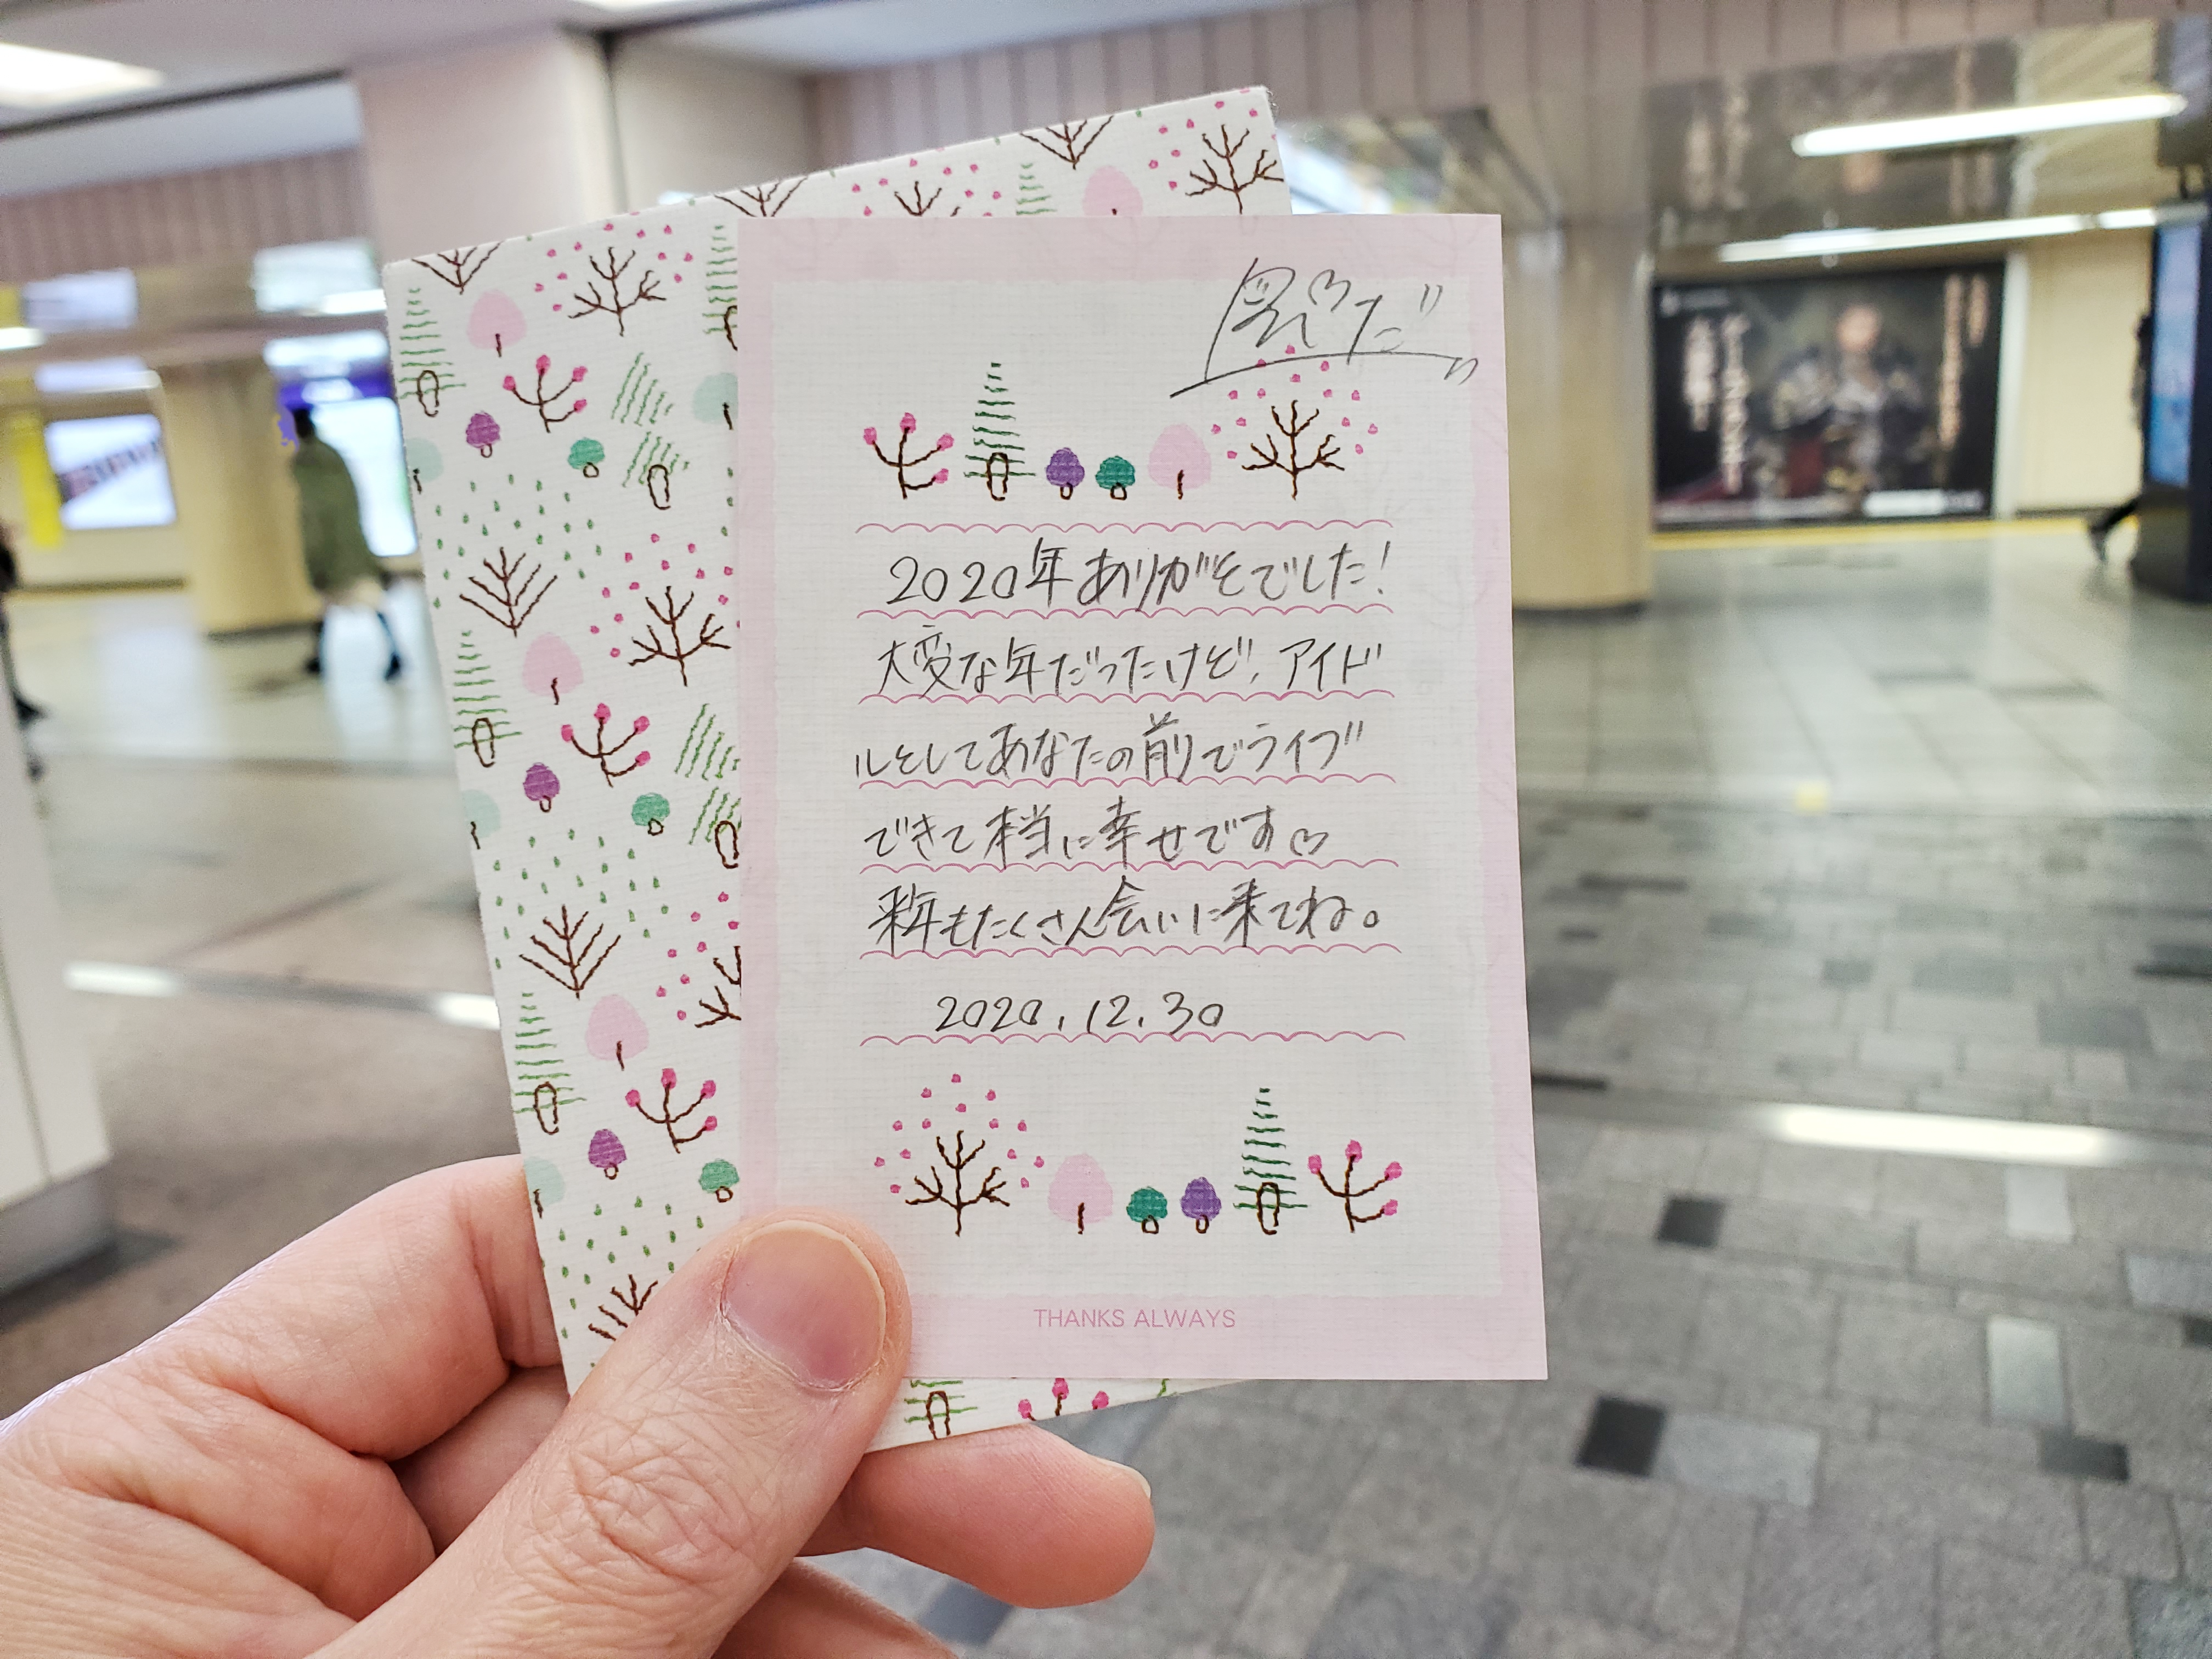 2020年ありがとでした!
大変な年だったけど、アイド
ルとしてあなたの前でライブ
できて本当に幸せです♡
来年もたくさん会いに来てね。
2020.12.30
THANKS ALWAYS